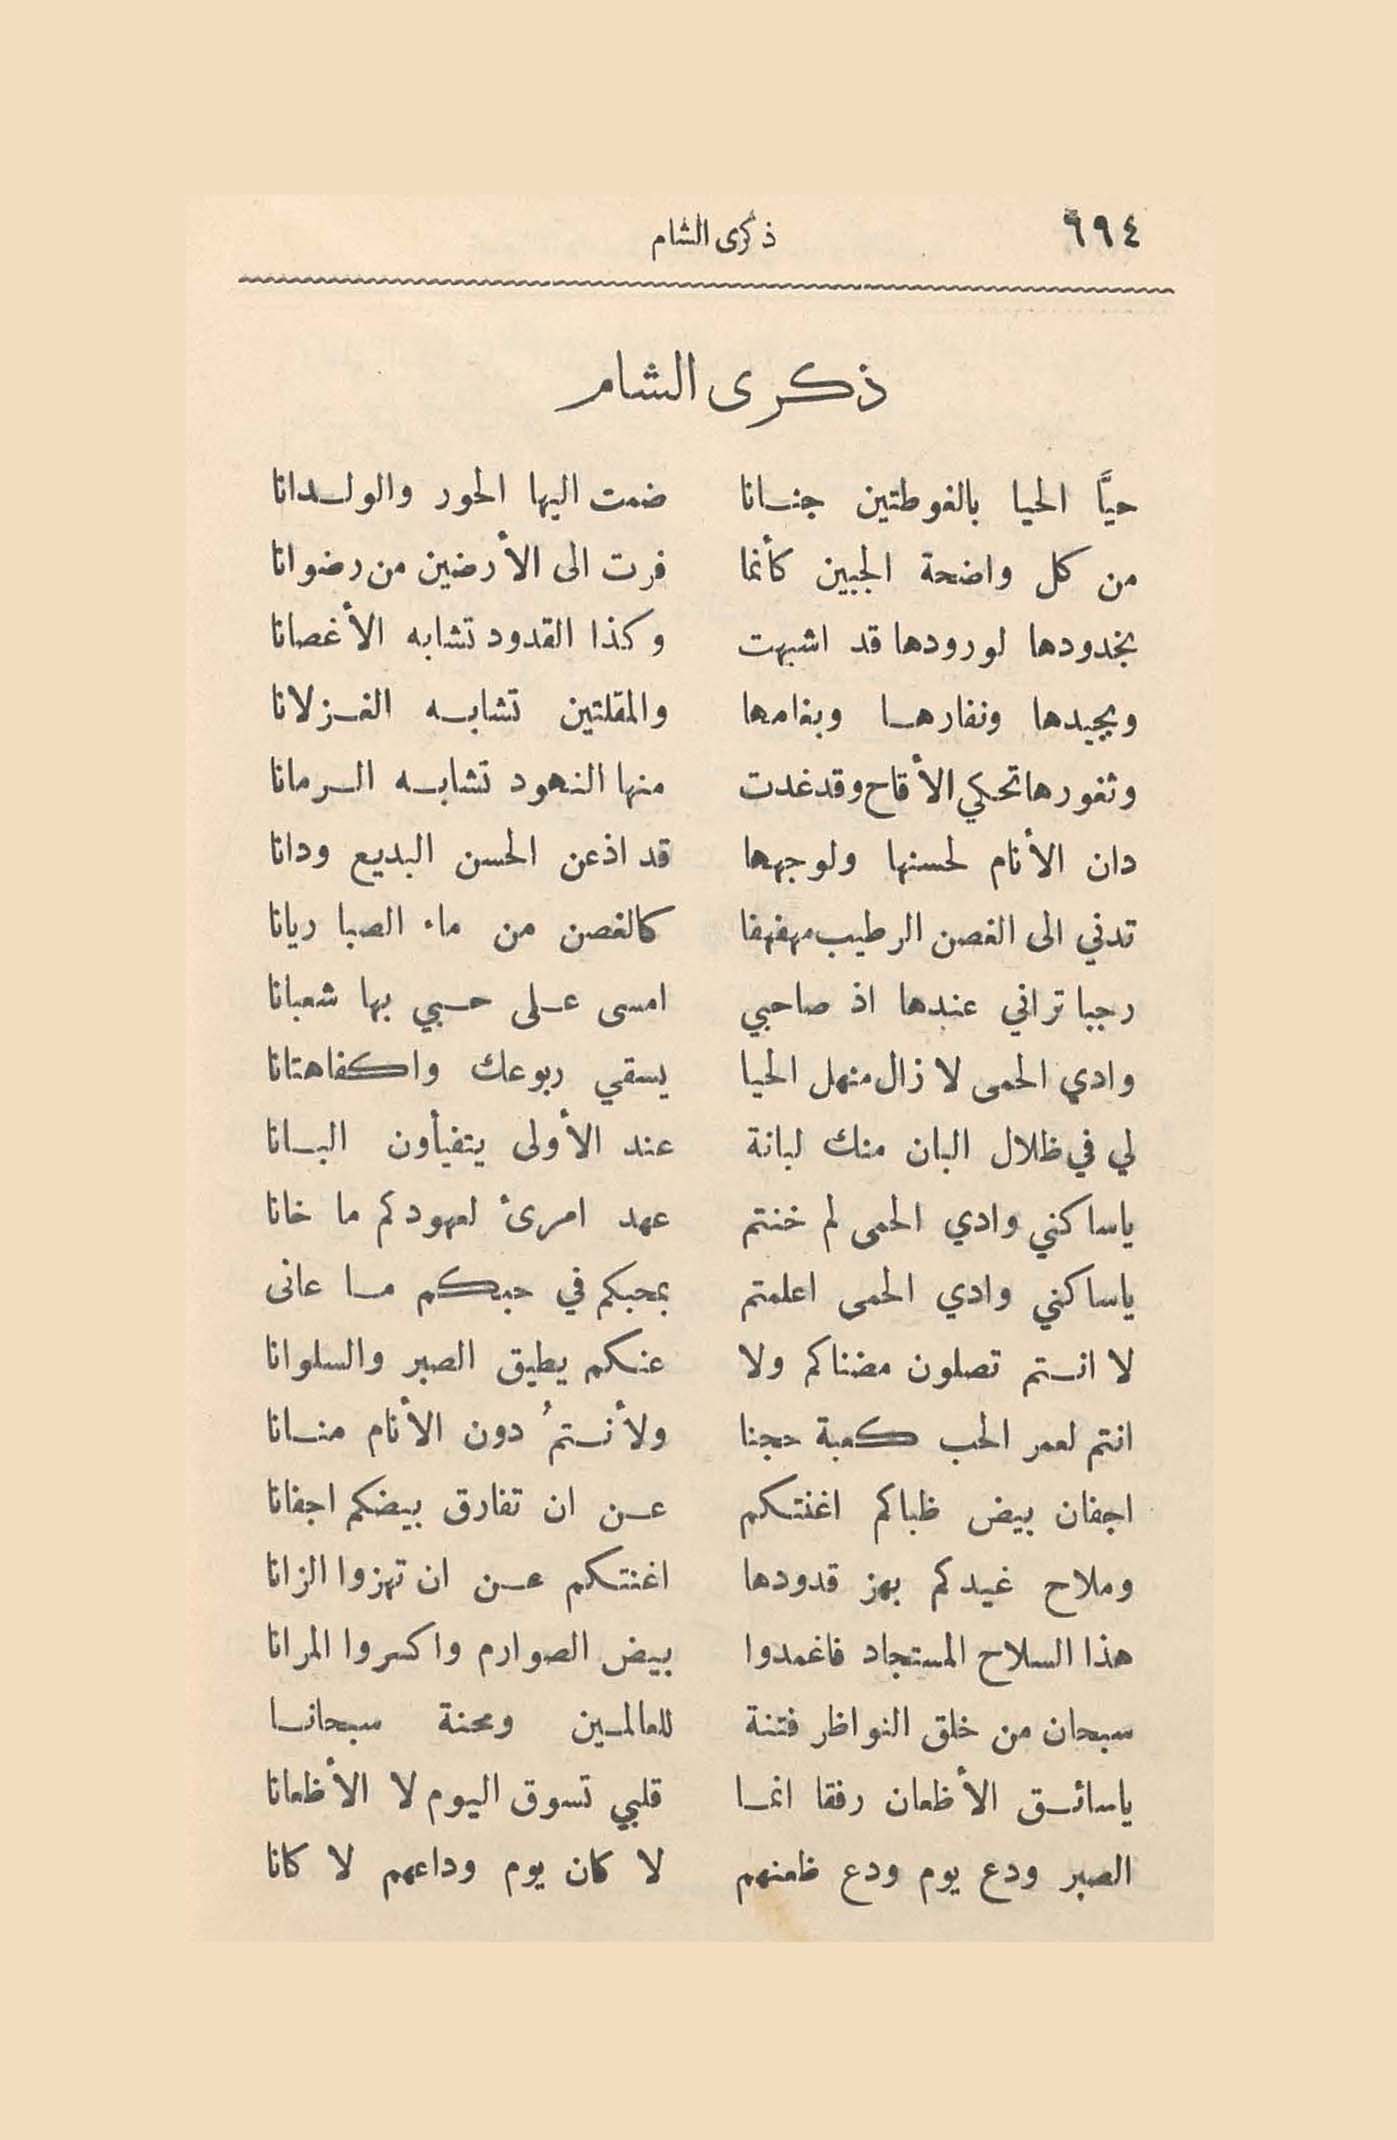 ٦٩٤ ذكرى الشام
ذكرى الشام
حيًّا الحيا بالغوطتين جنانا ضمت اليها الحور والولدانا
من كل واضحة الجبين كأنما فرت الى الأرضين من رضوانا
بخدودها لورودها قد اشبهت وكذا القدود تشابه الأغصانا
وبجيدها ونفارها وبغامها والمقلتين تشابه الغزلانا
وثغورها تحكي الأقاح وقد غدت منها النهود تشابه الرمانا
دان الأنام لحسنها ولوجهها قد اذعن الحسن البديع ودانا
تدني الى الغصن الرطيب مهفهفا كالغصن من ماء الصبا ريانا
رجبا تراني عندها اذ صاحبي امسى على حبي بها شعبانا
وادي الحمى لا زال منهل الحيا يسقي ربوعك واكفا هتانا
لي في ظلال البان منك لبانة عند الأولى يتفيأون البانا
ياساكني وادي الحمى لم خنتم عهد امرئ لعهودكم ما خانا
ياساكني وادي الحمى اعلمتم بمحبكم في حبكم ما عانى
لا انتم تصلون مضناكم ولا عنكم يطيق الصبر والسلوانا
انتم لعمر الحب كعبة حجنا ولأنتمُ دون الأنام منانا
اجفان بيض ظباكم اغنتكم عن ان تفارق بيضكم اجفانا
وملاح غيدكم بهز قدودها اغنتكم عن ان تهزوا الزانا
هذا السلاح المستجاد فاغمدوا بيض الصوارم واكسروا المرانا
سبحان من خلق النواظر فتنة للعالمين ومحنة سبحانا
ياسائق الأظعان رفقا انما قلبي تسوق اليوم لا الأظعانا
الصبر ودع يوم ودع ظعنهم لا كان يوم وداعهم لا كانا